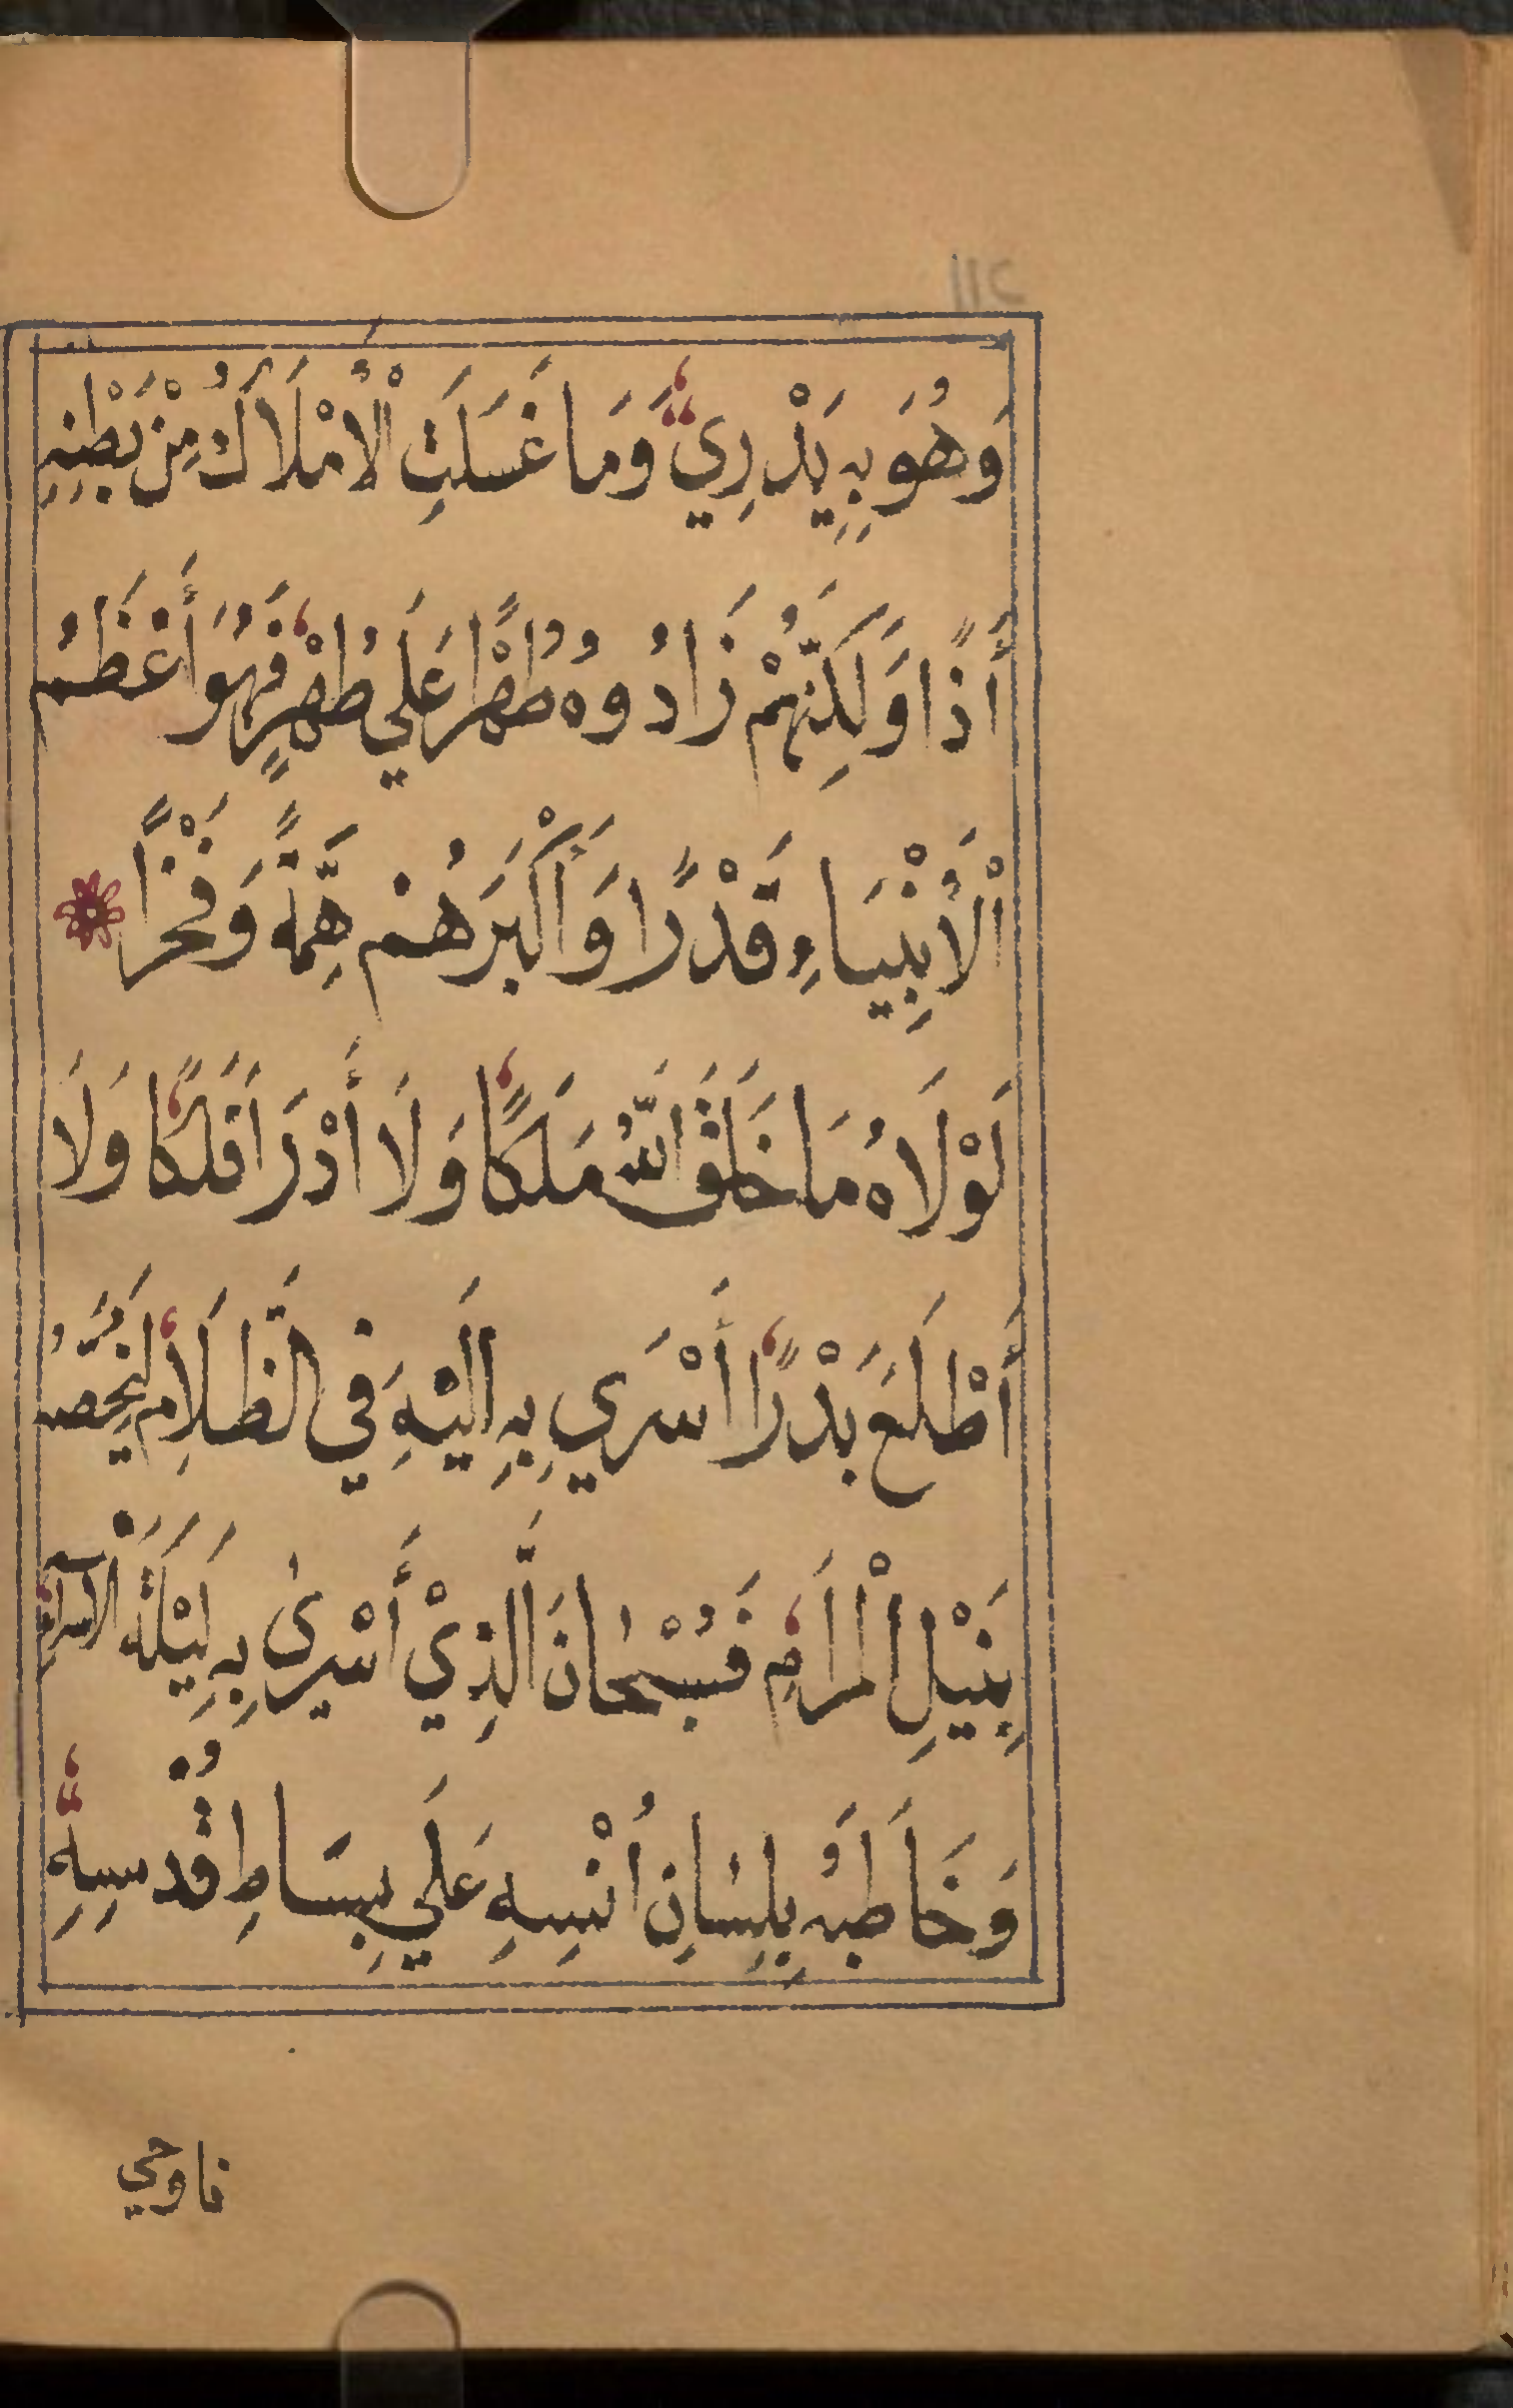 وَهُوَ بِهِ يَدْرِي وَمَا غَسَلَتِ الْأَمْلَاكُ مِنْ بَطْنِهِ
أَذًا وَلَكِنَّهُمْ زَادُوهُ طُهْرًا عَلَي طُهْرٍ فَهُوَ أَعْظَمُ
الْأَنْبِيَاءِ قَدْرًا وَأَكْبَرَهُمْ هِمَّةً وَفَخْرًا
لَوْلَاهُ مَا خَلَقَ اللَّهُ مَلَكًا وَلَا أَدْرَا فَلَكًا وَلَا
أَطْلَعَ بَدْرًا أَسْرَي بِهِ اَلَيْهِ فِي الظَّلَامِ لِيَخُصَّهُ
بِنَيْلِ الْمَرَامِ فَسُبْحَانَ الَّذِيْ أَسْرَىٰ بِهِ لَيْلَةَ الْاسراء
وَخَاطَبَهُ بِلِسَانِ اُنْسِهِ عَلَي بِسَاطِ قُدْسِهِ
فاوحي